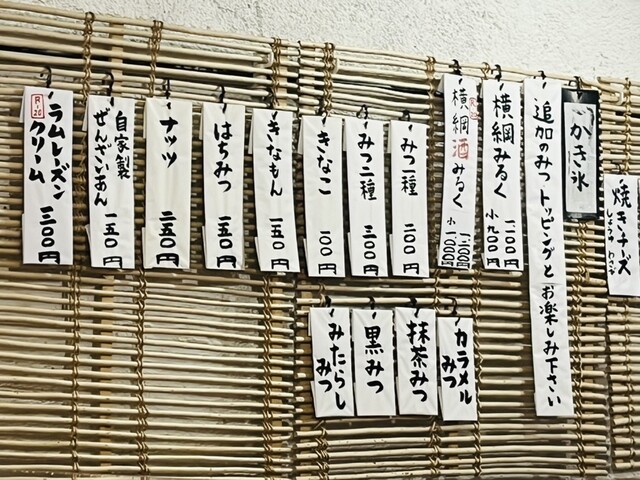 焼きチーズ
しょうゆ わさび
かき氷
追加のみつ トッピングと お楽しみ下さい
横綱みるく
小 九00円
一二00円
横綱酒みるく
小 一000円
みつ一種 二00円
みつ二種 三00円
きなこ 一00円
きなもん 一五0円
はちみつ 一五0円
ナッツ 二五0円
自家製
ぜんざいあん 一五0円
R-20
ラムレーズン
クリーム 三00円
カラメル
みつ
抹茶みつ
黒みつ
みたらし
みつ